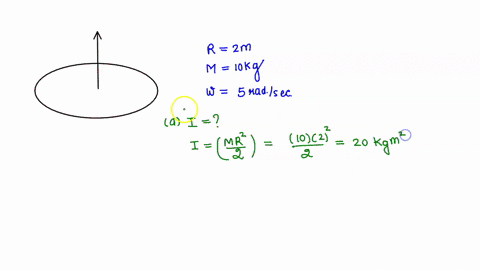 R = 2m
M = 10kg
W = 5 rad./sec
(a) I = ?
I = (MR²/2) = (10)(2)²/2 = 20 kgm²